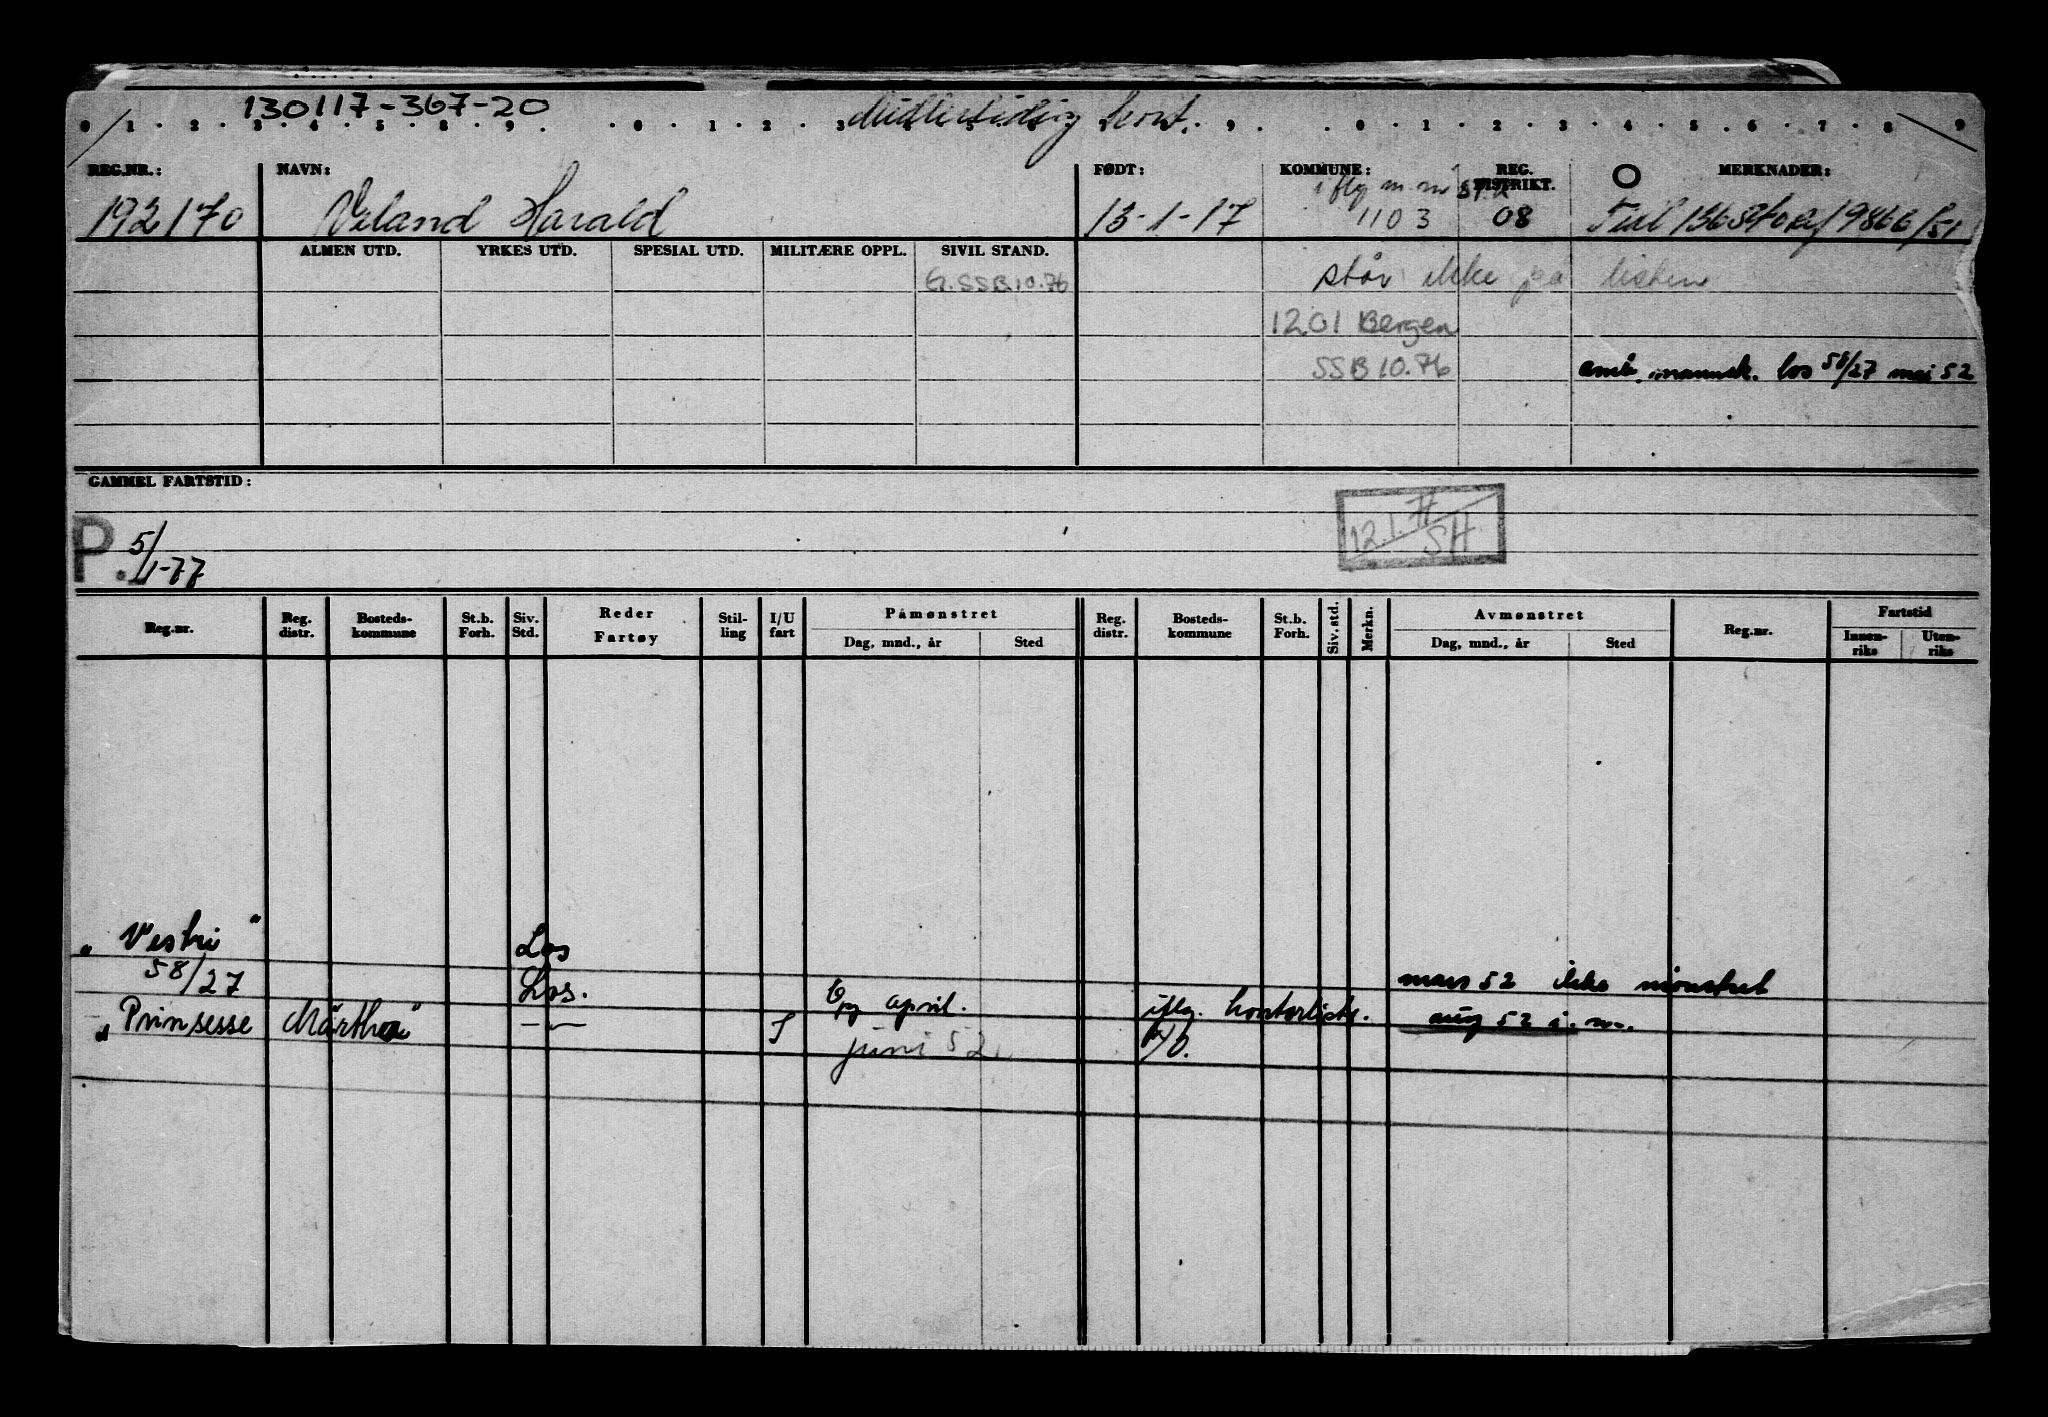 130117-367-20 Midlertidig kort.
0 1 2 3 4 5 8 9 0 1 2 3 9 0 1 2 3 4 5 6 7 8 9
REG.NR.: NAVN: FØDT: KOMMUNE: REG. DISTRIKT. MERKNADER:
iflg m.m.
192170 Veland Harald 13-1-17 1103 08
ALMEN UTD. YRKES UTD. SPESIAL UTD. MILITÆRE OPPL. SIVIL STAND.
G. SSB 10.76 står ikke på listen
1201 Bergen
SSB 10.76 los 58/27 mai 52
GAMMEL FARTSTID:
12.1.77 SH
P. 5/1-77
Reg.nr. Reg. distr. Bosteds-kommune St.b. Forh. Siv. Std. Reder Fartøy Stil-ling I/U fart Påmønstret Dag, mnd., år Sted Reg. distr. Bosteds-kommune St.b. Forh. Siv. std. Merkn. Avmønstret Dag, mnd., år Sted Reg.nr. Fartstid Innen-riks Uten-riks
"Vestri" Los
58/27 Los. mars 52 ikke mønstret
"Prinsesse Märtha" —"— I april. iflg. kontorliste. aug 52 i. m.
juni 52